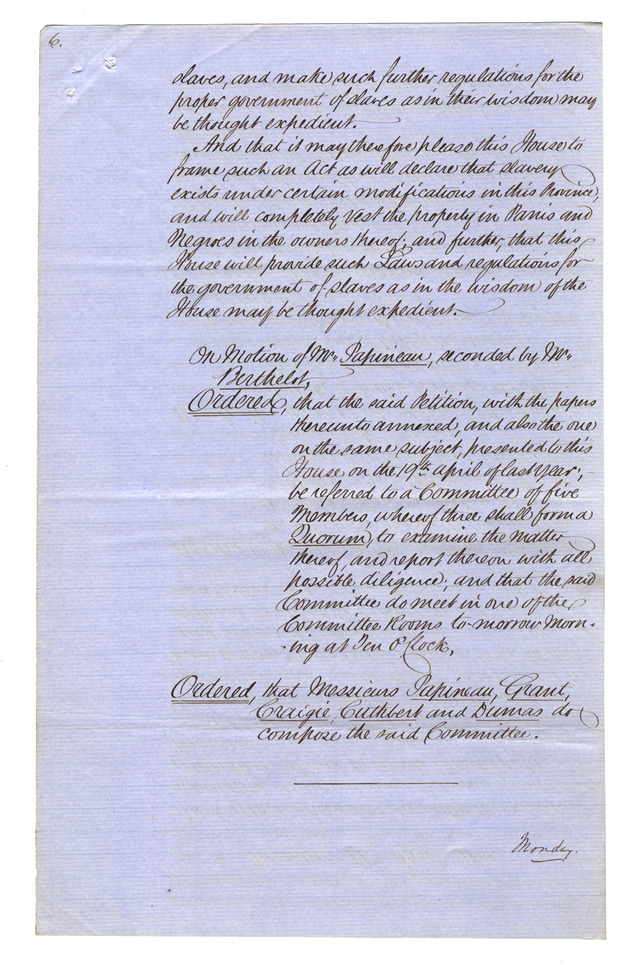 6.
slaves, and make such further regulations for the
proper government of slaves as in their wisdom may
be thought expedient.
And that it may therefore please this House to
frame such an Act as will declare that slavery
exists under certain modifications in this Province,
and will completely vest the property in Panis and
Negroes in the owners thereof; and further, that this
House will provide such Laws and regulations for
the government of slaves as in the wisdom of the
House may be thought expedient.
On Motion of Mr. Papineau, seconded by Mr.
Berthelot,
Ordered, that the said Petition, with the papers
thereunto annexed, and also the one
on the same subject, presented to this
House on the 19th. april of last Year;
be referred to a Committee of five
Members, whereof three shall form a
Quorum, to examine the matter
thereof, and report thereon with all
possible diligence; and that the said
Committee do meet in one of the
Committee Rooms to-morrow Morn-
-ing at Ten O'Clock.
Ordered, that Messieurs Papineau, Grant,
Craigie, Cuthbert and Dumas do
compose the said Committee.
Monday.